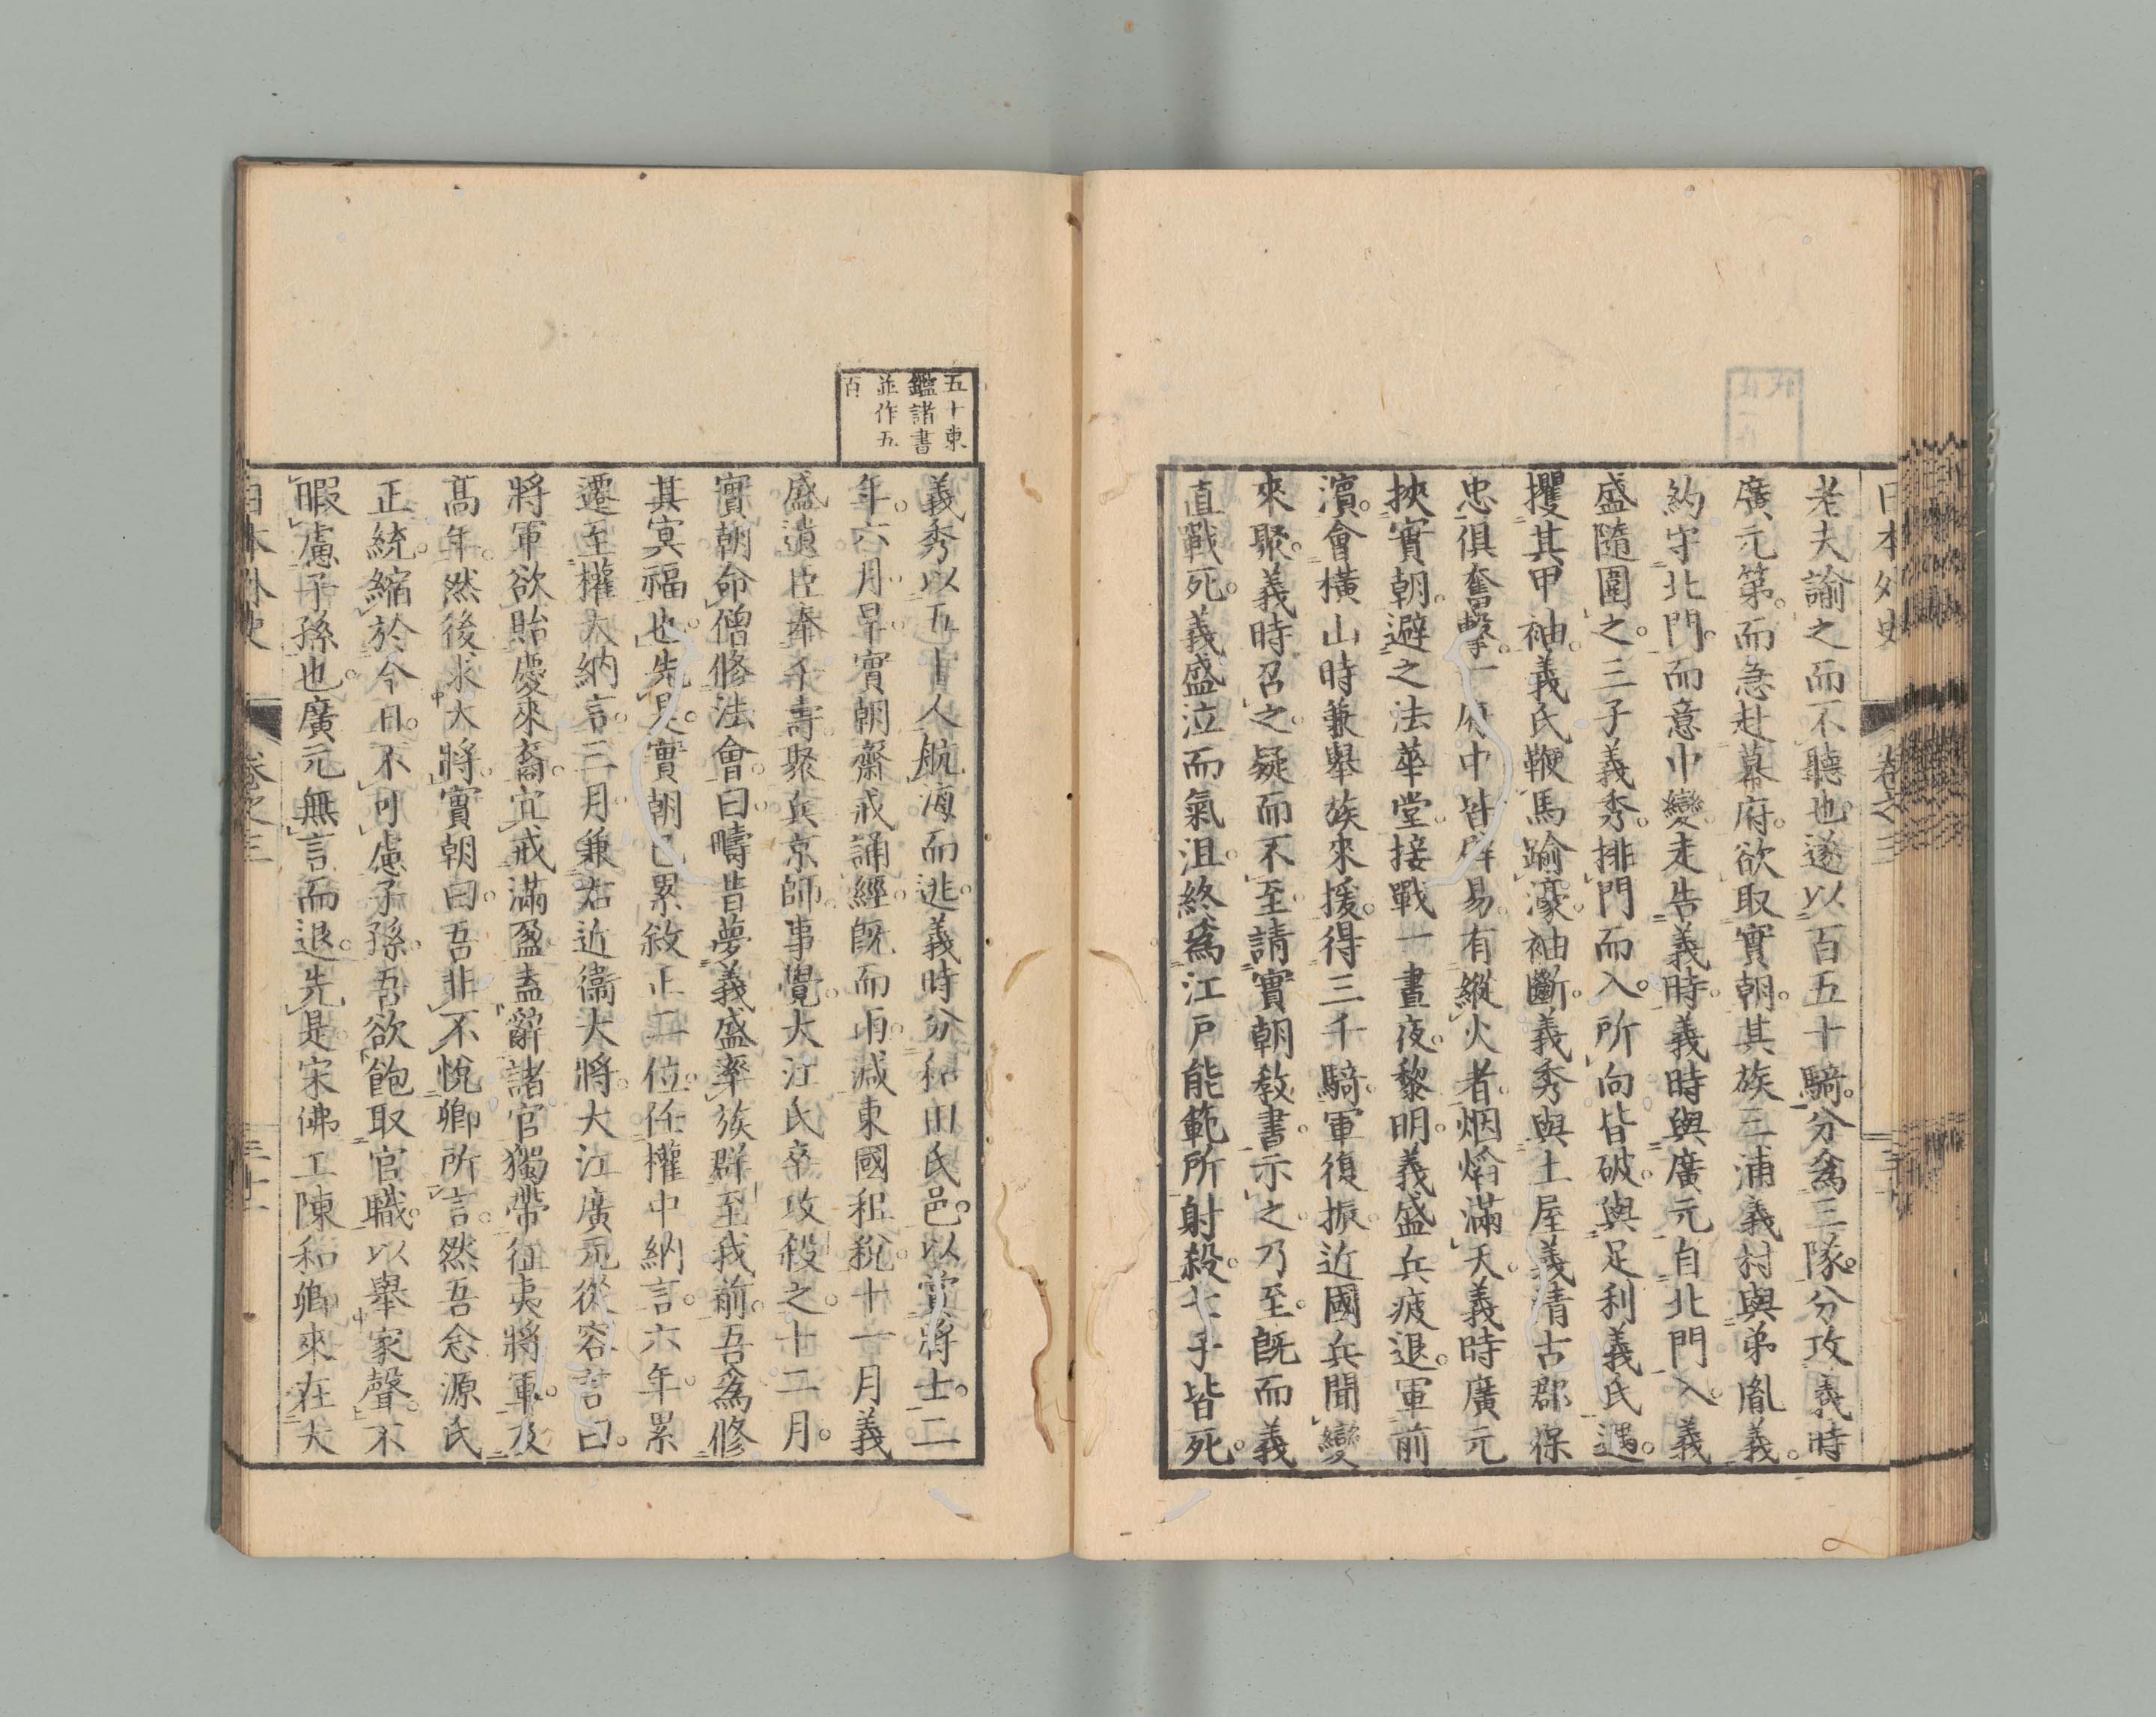 日本外史　卷之三
老夫諭之而不聽也。遂以百五十騎。分爲三隊。分攻義時
廣元第。而急赴幕府。欲取實朝。其族三浦義村與弟胤義。
約守北門。而意中變。走告義時。義時與廣元自北門入。義
盛隨圍之。三子義秀。排門而入。所向皆破。與足利義氏遇。
攫其甲袖。義氏鞭馬踰濠。袖斷。義秀與土屋義清古郡保
忠俱奮擊。一府中皆辟易。有縱火者。烟焰滿天。義時廣元
挾實朝。避之法華堂。接戰一晝夜。黎明。義盛兵疲退。軍前
濱。會橫山時兼舉族來援。得三千騎。軍復振。近國兵聞變
來聚。義時召之。疑而不至。請實朝教書。示之。乃至。既而義
直戰死。義盛泣而氣沮。終爲江戶能範所射殺。七子皆死。
五十東
鑑諸書
並作五
百
義秀以五十人航海而逃。義時分和田氏邑。以賞將士。二
年。六月。旱。實朝齋戒誦經。既而雨。減東國租稅。十一月。義
盛遺臣奉千壽。聚兵京師。事覺。大江氏卒攻殺之。十二月。
實朝命僧修法會。曰。疇昔夢義盛率族群至我前。吾爲修
其冥福也。先是。實朝已累敘正二位。任權中納言。六年。累
遷至權大納言。三月。兼右近衞大將。大江廣元從容言曰。
將軍欲貽慶來裔。宜戒滿盈。盍辭諸官。獨帶征夷將軍。及
高年。然後求大將。實朝曰。吾非不悅卿所言。然吾念源氏
正統。縮於今日。不可慮子孫。吾欲飽取官職。以舉家聲。不
暇慮子孫也。廣元無言而退。先是宋佛工陳和卿來在大
日本外史　卷之三